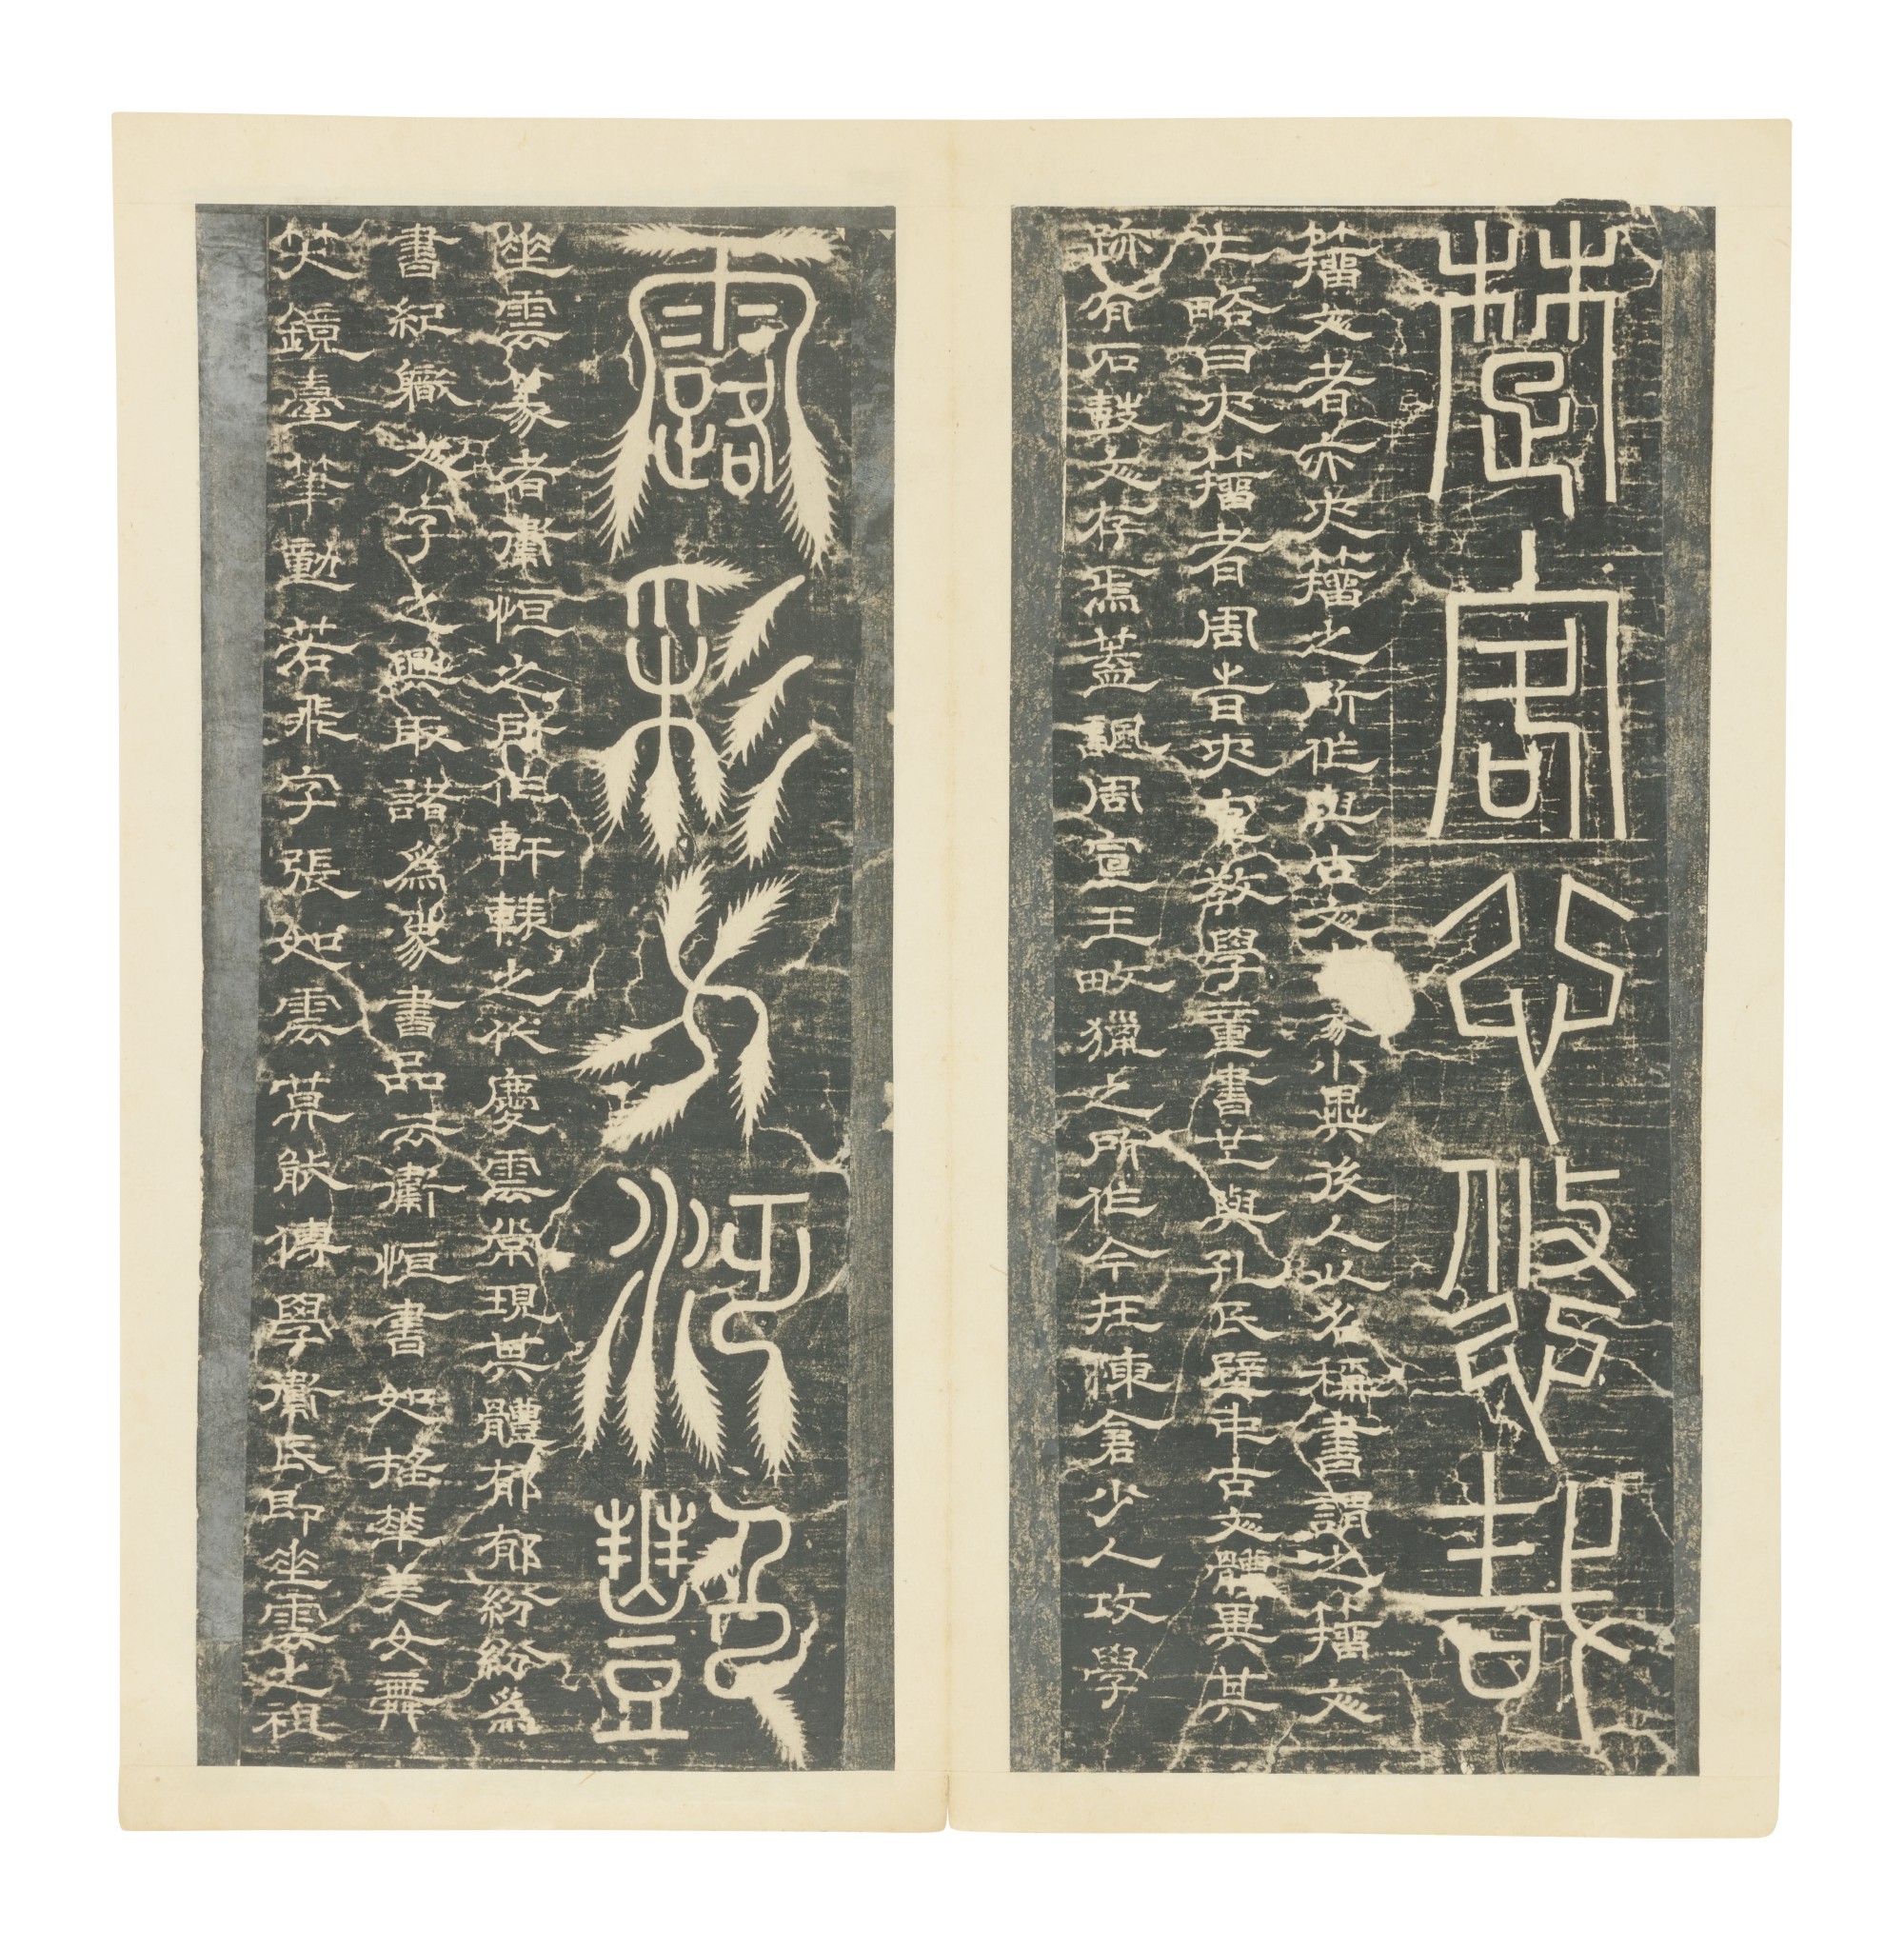 楚客心悠哉
籀文者亦史籀之所作與古文大篆小異後人以名稱書謂之籀文
七略曰史籀者周時史官教學童書也與孔氏壁中古文體異其
跡有石鼓文存焉蓋諷周宣王畋獵之所作今在陳倉少人攻學
露彩方泛艷
垂雲篆者衛恒之所作軒轅之代慶雲常現其體郁郁紛紛為
書紀職文字之興取諸為篆書品云衛恒書如插華美女舞
笑鏡臺筆動若飛字張如雲莫能傳學衛氏即垂雲之祖